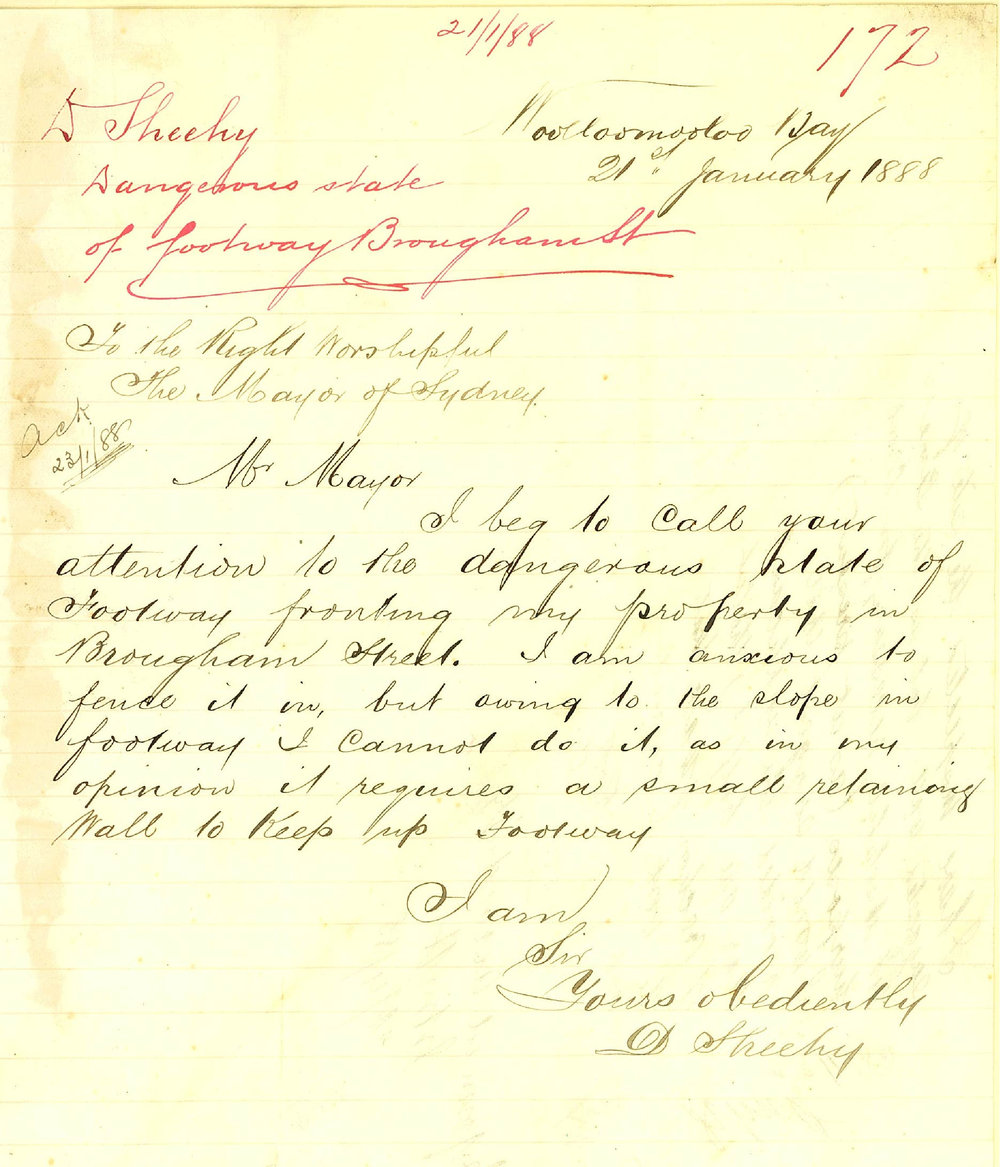 21/1/88
172
D Sheehy
Dangerous state
of footway Brougham St
Woolloomooloo Bay
21st January 1888
To the Right Worshipful
The Mayor of Sydney.
Ack
23/1/88
Mr Mayor
I beg to call your
attention to the dangerous state of
Footway fronting my property in
Brougham Street. I am anxious to
fence it in, but owing to the slope in
footway I cannot do it, as in my
opinion it requires a small retaining
Wall to Keep up Footway
I am
Sir
Yours obediently
D Sheehy